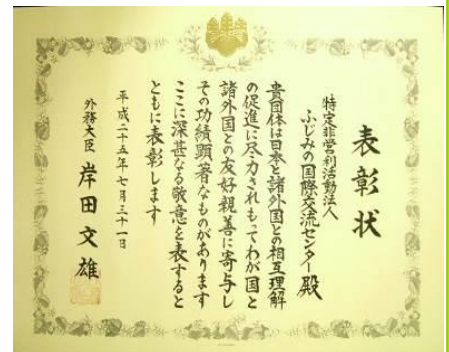 表彰状
特定非営利活動法人
ふじみの国際交流センター殿
貴団体は日本と諸外国との相互理解
の促進に尽力されもってわが国と
諸外国との友好親善に寄与し
その功績顕著なものがあります
ここに深甚なる敬意を表すると
ともに表彰します
平成二十五年七月三十一日
外務大臣 岸田文雄